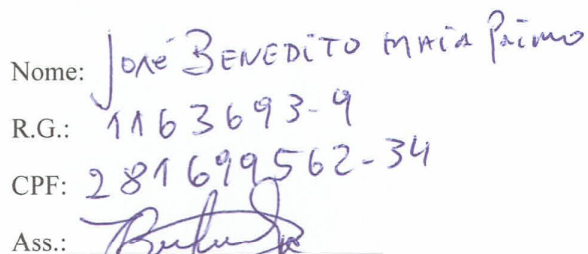 Nome: José BENEDITO MAIA Primo
R.G.: 1163693-9
CPF: 281699562-34
Ass.: